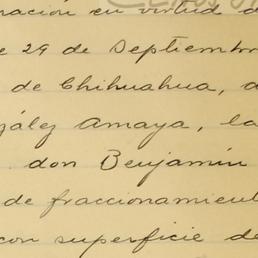 nación en virtud d
e 29 de Septiembre
de Chihuahua, a
zález Amaya, la
don Benjamín
de fraccionamient
con superficie de